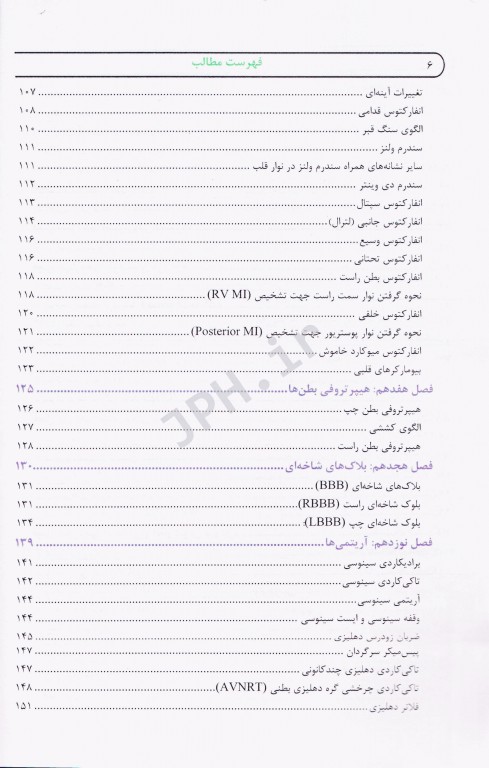 ۶ فهرست مطالب
تغییرات آینه‌ای ۱۰۷
انفارکتوس قدامی ۱۰۸
الگوی سنگ قبر ۱۱۰
سندرم ولنز ۱۱۱
سایر نشانه‌های همراه سندرم ولنز در نوار قلب ۱۱۱
سندرم دی وینتر ۱۱۲
انفارکتوس سپتال ۱۱۳
انفارکتوس جانبی (لترال) ۱۱۴
انفارکتوس وسیع ۱۱۶
انفارکتوس تحتانی ۱۱۶
انفارکتوس بطن راست ۱۱۸
نحوه گرفتن نوار سمت راست جهت تشخیص (RV MI) ۱۱۸
انفارکتوس خلفی ۱۲۰
نحوه گرفتن نوار پوستریور جهت تشخیص (Posterior MI) ۱۲۱
انفارکتوس میوکارد خاموش ۱۲۲
بیومارکرهای قلبی ۱۲۳
فصل هفدهم: هیپرتروفی بطن‌ها ۱۲۵
هیپرتروفی بطن چپ ۱۲۶
الگوی کششی ۱۲۷
هیپرتروفی بطن راست ۱۲۸
فصل هجدهم: بلاک‌های شاخه‌ای ۱۳۰
بلاک‌های شاخه‌ای (BBB) ۱۳۱
بلوک شاخه‌ای راست (RBBB) ۱۳۱
بلوک شاخه‌ای چپ (LBBB): ۱۳۴
فصل نوزدهم: آریتمی‌ها ۱۳۹
برادیکاردی سینوسی ۱۴۱
تاکی‌کاردی سینوسی ۱۴۲
آریتمی سینوسی ۱۴۴
وقفه سینوسی و ایست سینوسی ۱۴۴
ضربان زودرس دهلیزی ۱۴۵
پیس‌میکر سرگردان ۱۴۷
تاکی‌کاردی دهلیزی چندکانونی ۱۴۷
تاکی‌کاردی چرخشی گره دهلیزی بطنی (AVNRT) ۱۴۸
فلاتر دهلیزی ۱۵۱
JPH.ir